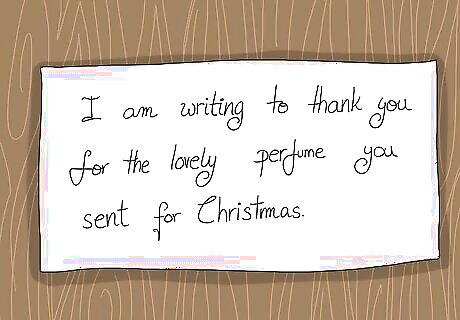 I am writing to thank you
for the lovely perfume you
sent for Christmas.